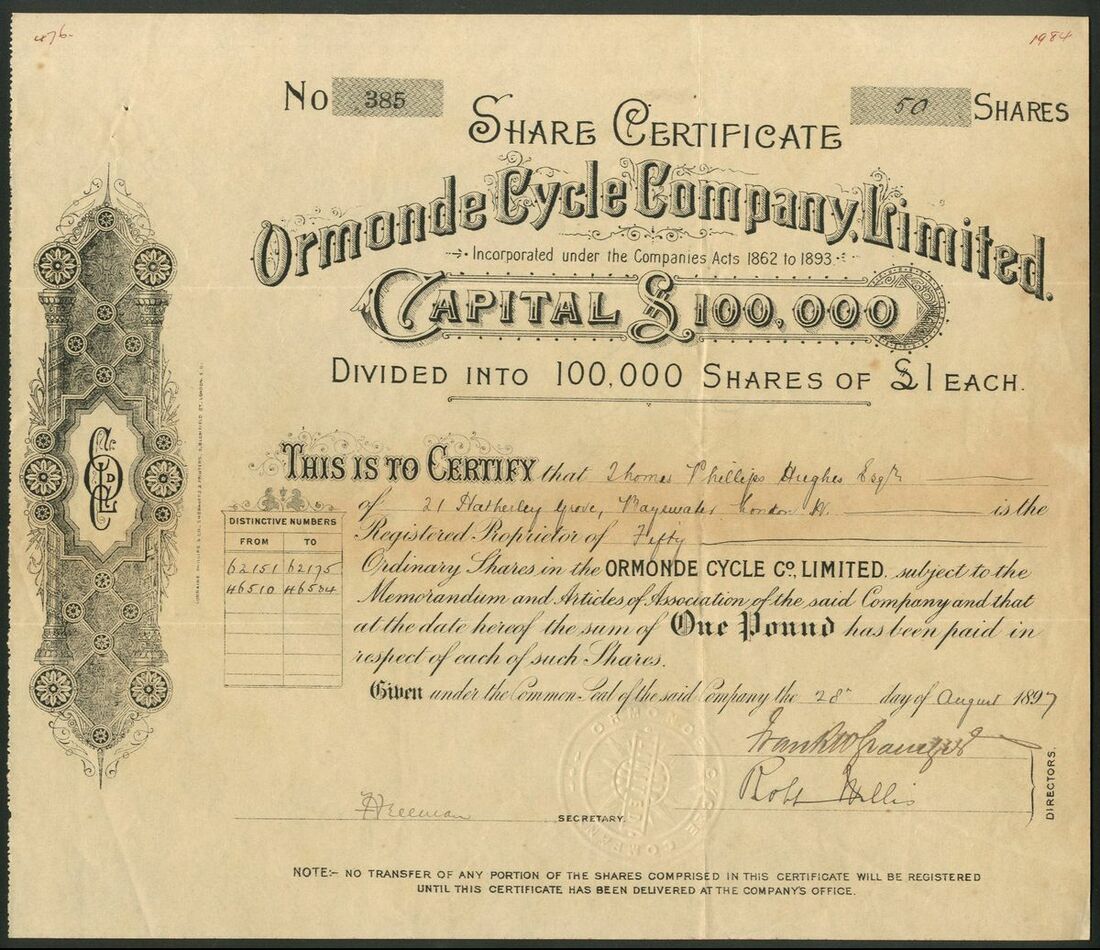 476
1984
No 385
50 SHARES
SHARE CERTIFICATE
Ormonde Cycle Company, Limited.
Incorporated under the Companies Acts 1862 to 1893.
CAPITAL £100,000
DIVIDED INTO 100,000 SHARES OF £1 EACH.
THIS IS TO CERTIFY that Thomas Phillips Hughes Esqr
of 21 Hatherley Grove, Bayswater London W. is the
Registered Proprietor of Fifty
Ordinary Shares in the ORMONDE CYCLE CO., LIMITED, subject to the
Memorandum and Articles of Association of the said Company and that
at the date hereof the sum of One Pound has been paid in
respect of each of such Shares.
DISTINCTIVE NUMBERS
FROM TO
62151 62175
46510 46534
Given under the Common Seal of the said Company the 28th day of August 1897
Robt Willis
DIRECTORS.
SECRETARY.
ORMONDE CYCLE COMPANY
LIMITED
NOTE:- NO TRANSFER OF ANY PORTION OF THE SHARES COMPRISED IN THIS CERTIFICATE WILL BE REGISTERED
UNTIL THIS CERTIFICATE HAS BEEN DELIVERED AT THE COMPANY'S OFFICE.